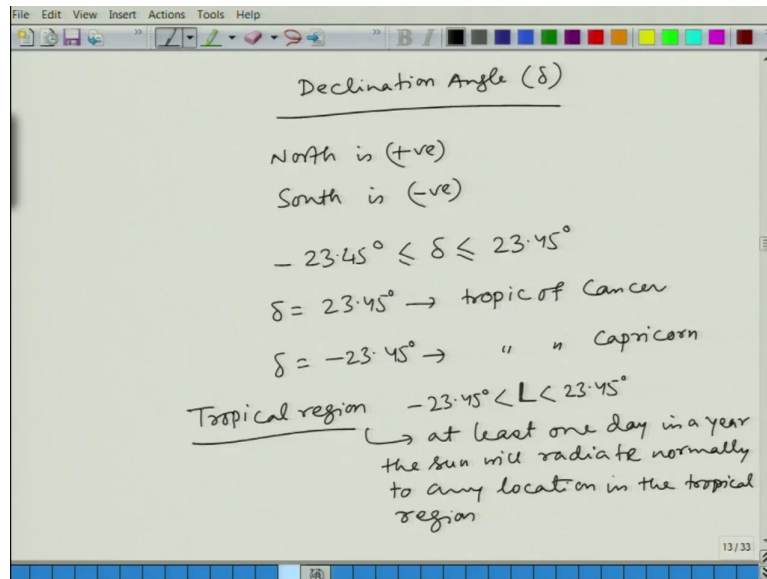 File Edit View Insert Actions Tools Help
B I
Declination Angle (δ)
North is (+ve)
South is (-ve)
- 23.45° ≤ δ ≤ 23.45°
δ = 23.45° → tropic of Cancer
δ = -23.45° → " " Capricorn
Tropical region -23.45° < L < 23.45°
↳ at least one day in a year
the sun will radiate normally
to any location in the tropical
region
13/33